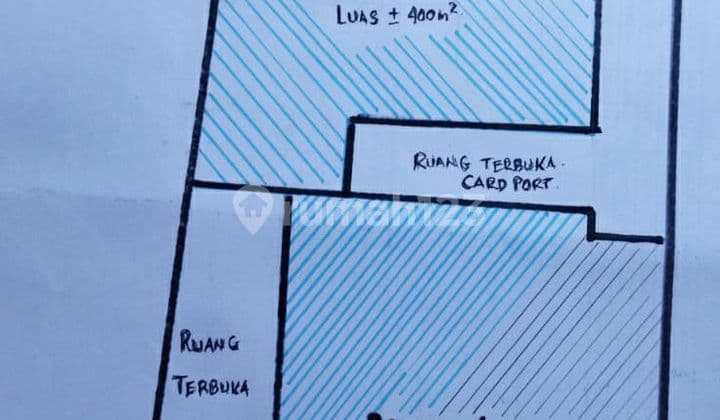 LUAS ± 400m²
RUANG TERBUKA.
CARD PORT.
rumah123
RUANG
TERBUKA